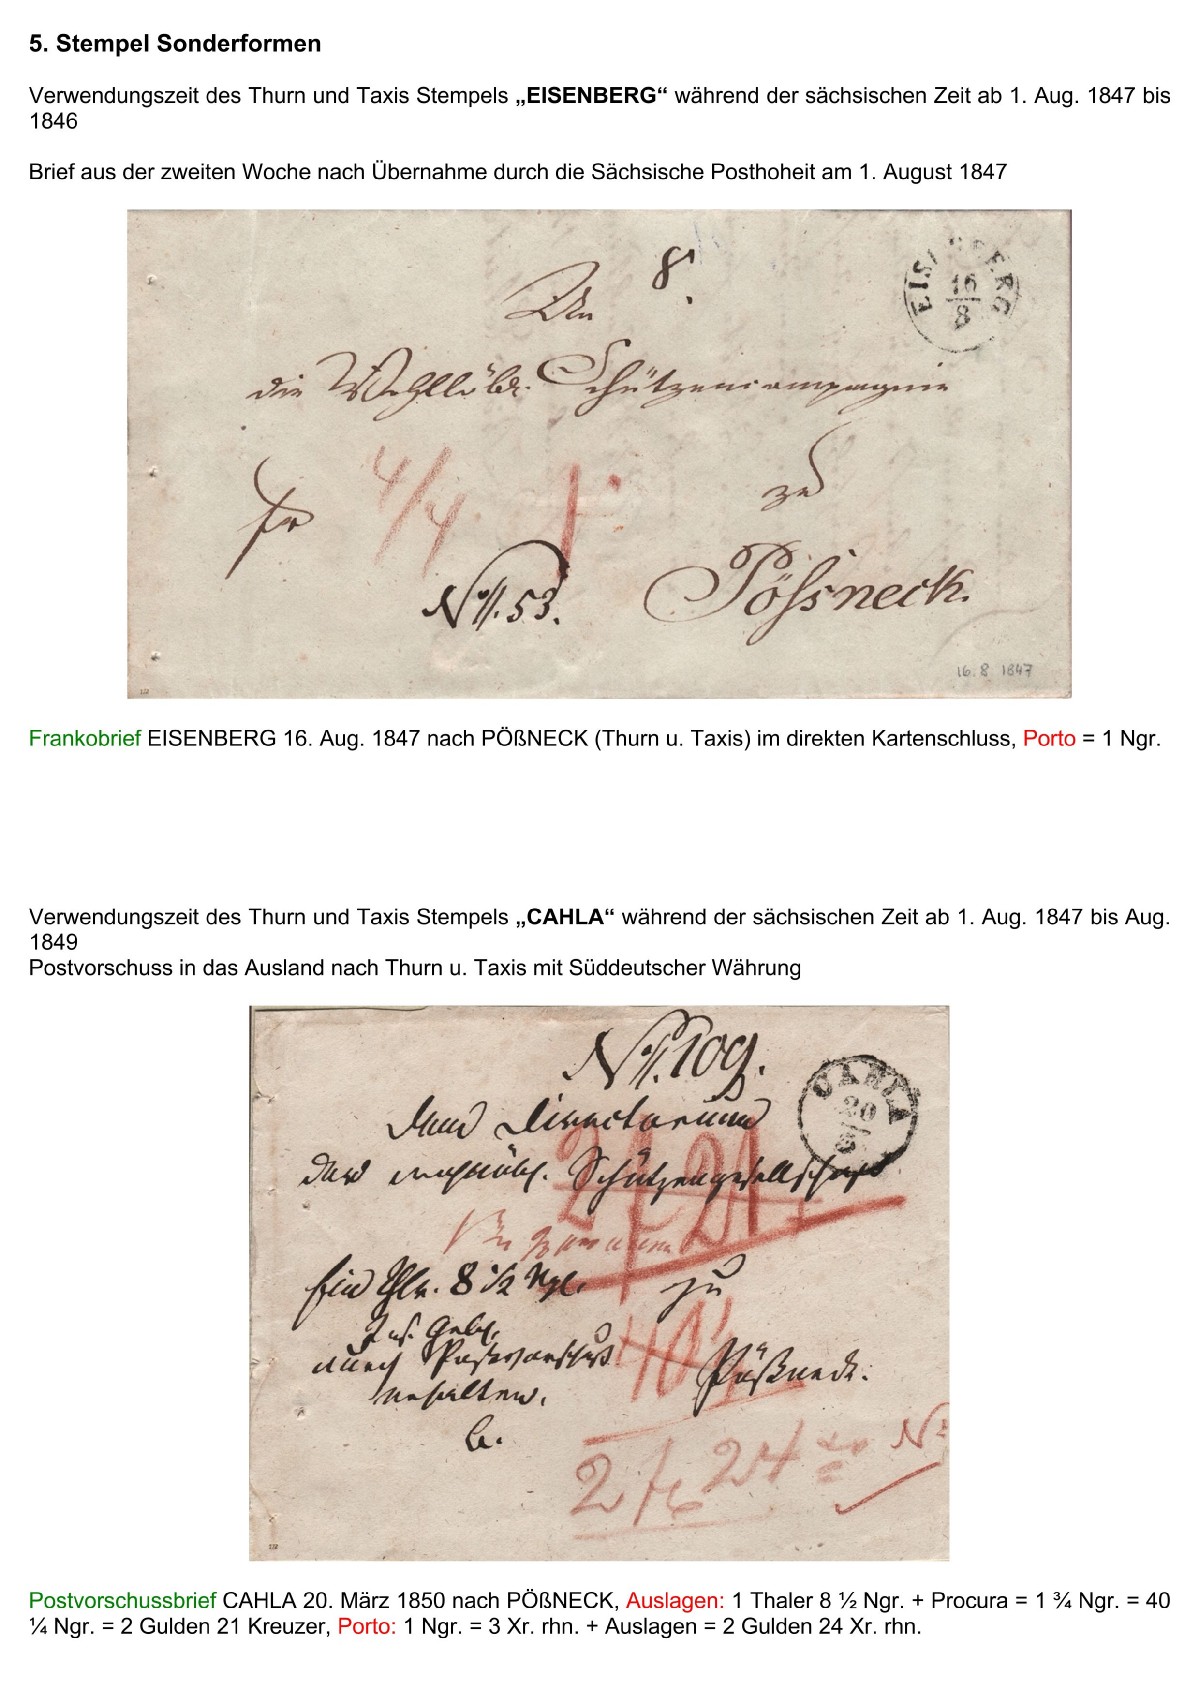 5. Stempel Sonderformen
Verwendungszeit des Thurn und Taxis Stempels „EISENBERG“ während der sächsischen Zeit ab 1. Aug. 1847 bis
1846
Brief aus der zweiten Woche nach Übernahme durch die Sächsische Posthoheit am 1. August 1847
8
EISENBERG
16
8
An
die Wohllöbl. Schützencompagnie
fr
4/4
1
zu
No. 53.
Pößneck.
16.8 1847
Frankobrief EISENBERG 16. Aug. 1847 nach PÖßNECK (Thurn u. Taxis) im direkten Kartenschluss, Porto = 1 Ngr.
Verwendungszeit des Thurn und Taxis Stempels „CAHLA“ während der sächsischen Zeit ab 1. Aug. 1847 bis Aug.
1849
Postvorschuss in das Ausland nach Thurn u. Taxis mit Süddeutscher Währung
No. 109.
CAHLA
20
3
Dem Directorium
der Schützengesellschaft
2f 21
Ein Thlr. 8 1/2 Ngr.
zu
Ins. Gebh.
durch Postvorschuß
40
Pößneck.
erhalten.
b.
2 f 24 xr
Postvorschussbrief CAHLA 20. März 1850 nach PÖßNECK, Auslagen: 1 Thaler 8 ½ Ngr. + Procura = 1 ¾ Ngr. = 40
¼ Ngr. = 2 Gulden 21 Kreuzer, Porto: 1 Ngr. = 3 Xr. rhn. + Auslagen = 2 Gulden 24 Xr. rhn.